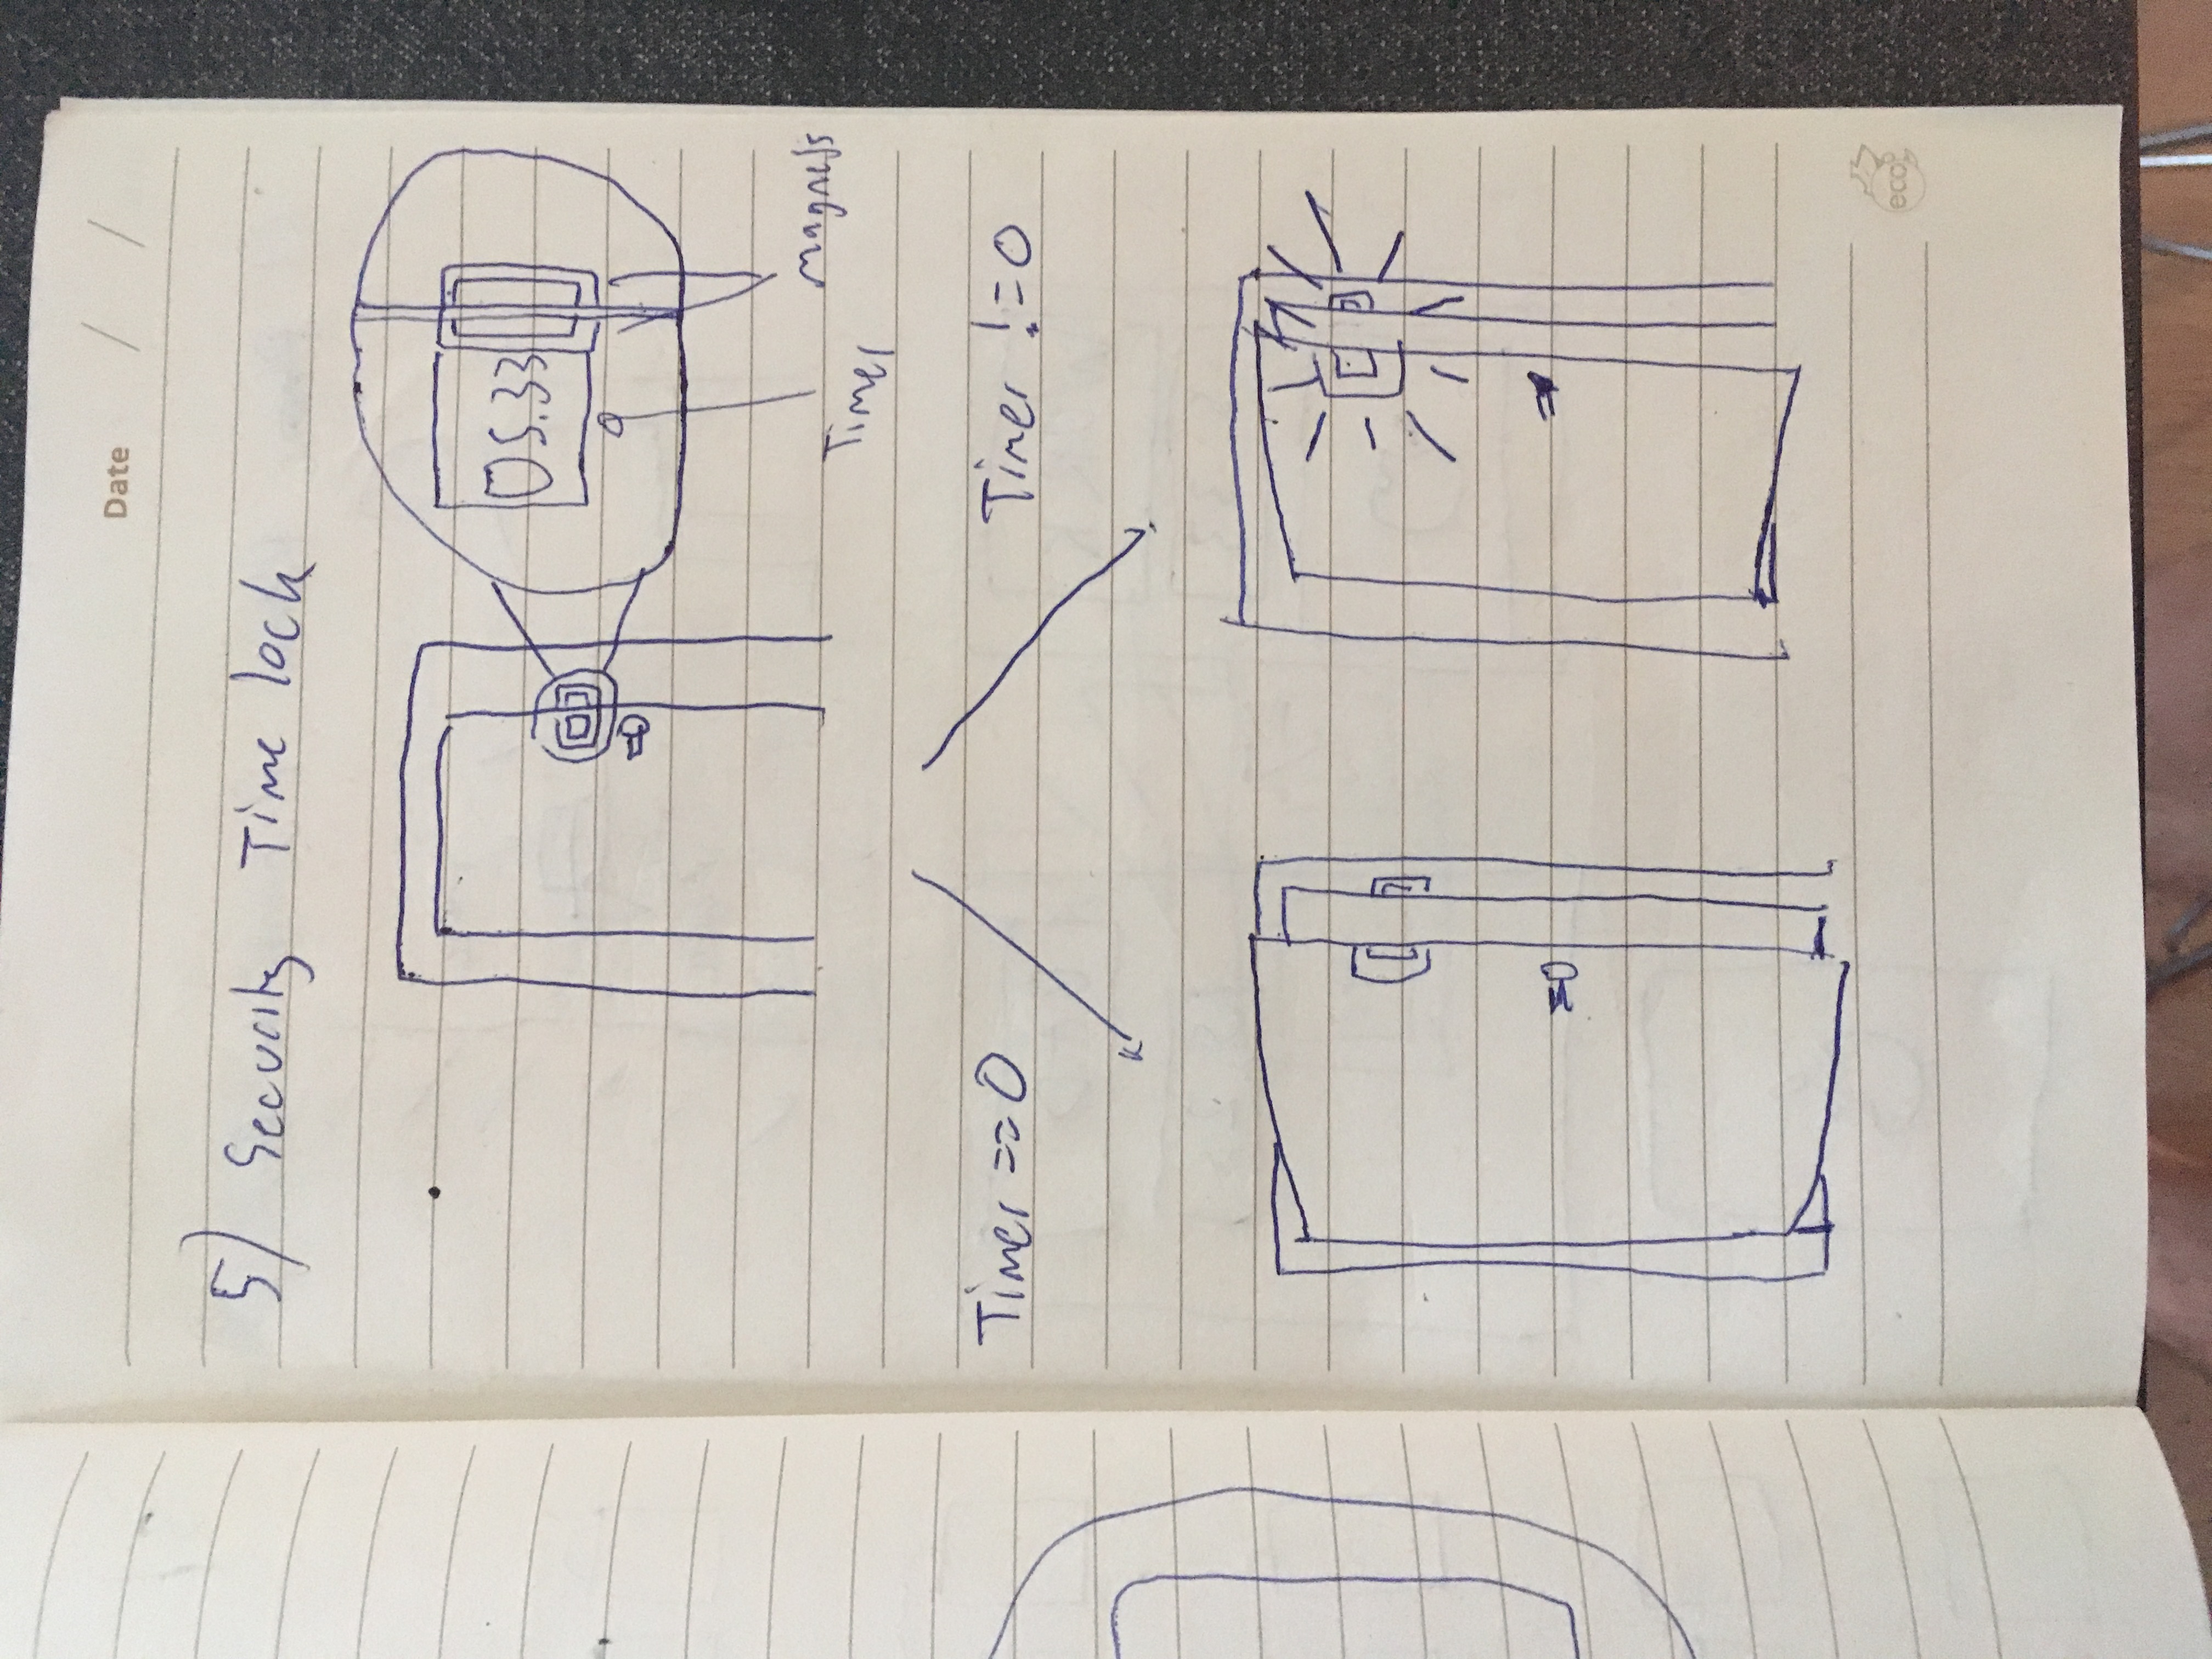 Date / /
5) Security Time lock
05.33
Magnets
Timer
Timer == 0
Timer != 0
eco